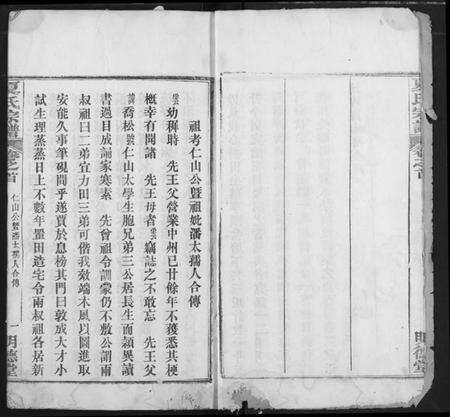 祖考仁山公暨祖妣潘太孺人合傳
雲幼稺時 先王父營業中州已廿餘年不獲悉其梗
概幸有聞諸 先王母者雲竊誌之不敢忘 先王父
諱喬松號仁山太學生胞兄弟三公居長生而穎異讀
書過目成誦家寒素 先曾祖令訓蒙仍不敷公謂兩
叔祖曰二弟宜力田三弟可偕我效端木風以圖進取
安能久事筆硯間乎遂賈於息榜其門曰敦成大才小
試生理蒸蒸日上不數年置田造宅令兩叔祖各居新
夏氏宗譜
卷之首
仁山公暨潘太孺人合傳
一
明德堂
夏氏宗譜
卷之首
明德堂